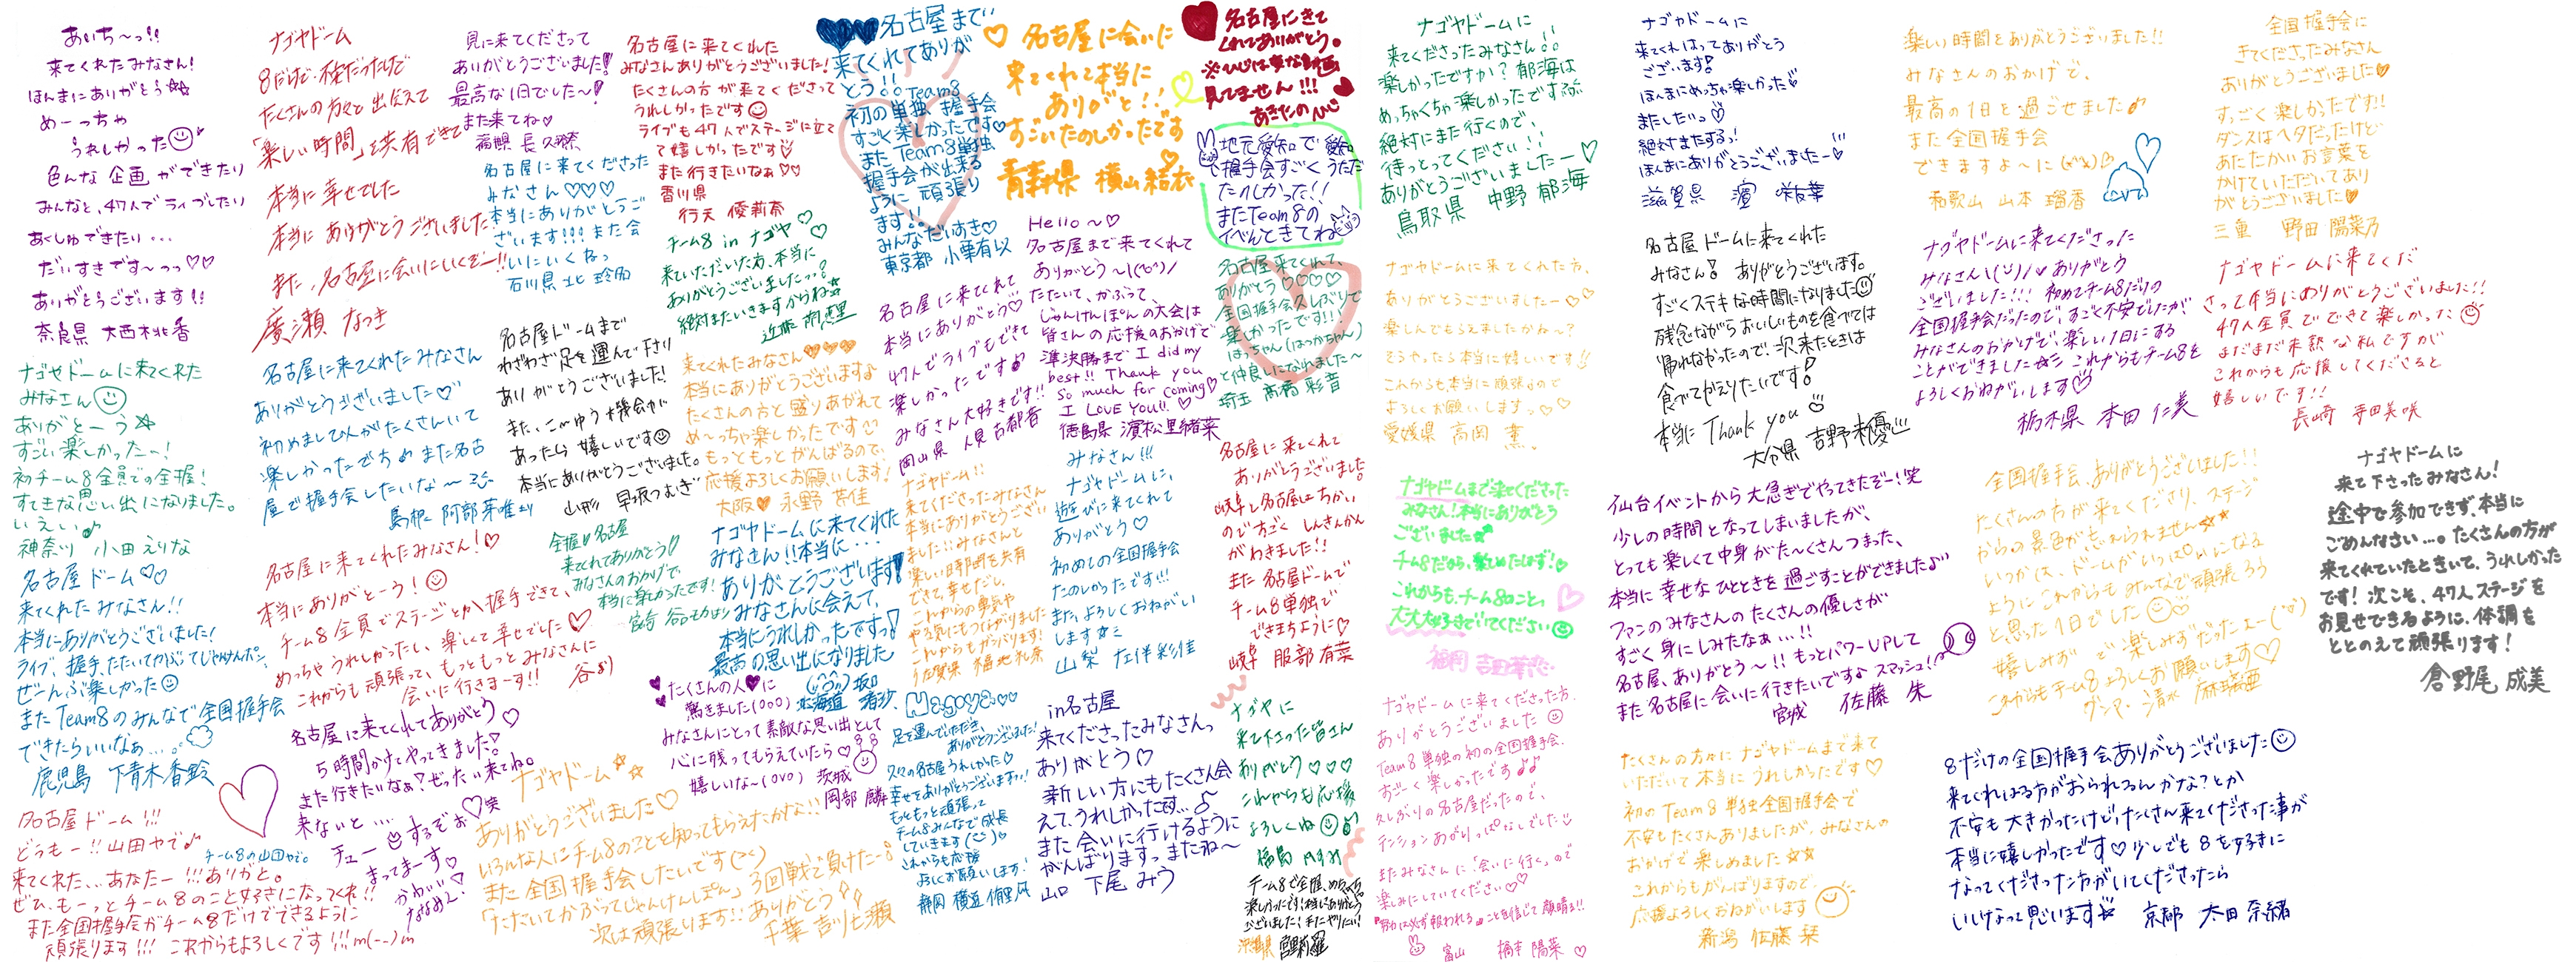 あいち〜っ!!
来てくれたみなさん!
ほんまにありがとう☆☆
めーっちゃ
うれしかった☺
色んな企画ができたり
みんなと、47人でライブしたり
あくしゅできたり...
だいすきです〜っっ♡♡
ありがとうございます!!
奈良県 大西桃香
ナゴヤドームに来てくれた
みなさん☺
ありがとーう☆
すごい楽しかった〜!
初チーム8全員での全握!
すてきな思い出になりました。
いえい♪
神奈川 小田えりな
名古屋ドーム♡♡
来てくれたみなさん!!
本当にありがとうございました!
ライブ、握手、たたいてかぶってじゃんけんポン、
ぜーんぶ楽しかった☺
またTeam8のみんなで全国握手会
できたらいいなぁ...。
鹿児島 下青木香鈴
名古屋ドーム!!!
どうもー!!山田やで♪
チーム8の山田やで。
来てくれた...あなたー!!!ありがと。
ぜひ、もーっとチーム8のこと好きになってくれ!!
また全国握手会がチーム8だけでできるように
頑張ります!!!これからもよろしくです!!!m(--)m
ナゴヤドーム
8だけで、不安だったけど
たくさんの方々と出会えて
「楽しい時間」を共有できて
本当に幸せでした
本当にありがとうございました!
また、名古屋に会いにいくぞー!!
廣瀬なつき
名古屋に来てくれたみなさん
ありがとうございました♡
初めましての人がたくさんいて
楽しかったです♪また名古
屋で握手会したいな〜
島根 阿部芽唯
名古屋に来てくれたみなさん!♡
本当にありがとーう!☺
チーム8全員でステージとか握手できて、
めっちゃうれしかったし、楽しくて幸せでした♡
これからも頑張って、もっともっとみなさんに
会いに行きまーす!!
名古屋に来てくれてありがとう♡
5時間かけてやってきました!
また行きたいなぁ?ぜったい来てね。
来ないと....
チューするぞぉ♡笑
まってまーす♡
見に来てくださって
ありがとうございました!
最高な1日でした〜!
また来てね♡
福岡県 長久玲奈
名古屋に来てくださった
みなさん♡♡♡
本当にありがとうご
ざいます!!!また会
いにいくねっ
石川県 北玲名
名古屋ドームまで
わざわざ足を運んで下さり
ありがとうございました!
また、こーゆう機会が
あったら嬉しいです☺
本当にありがとうございました。
山形 早坂つむぎ
全握in名古屋
来てくれてありがとう♡
みなさんのおかげで
本当に楽しかったです!
宮崎 谷口もか
ナゴヤドーム☆☆
ありがとうございました♡
いろんな人にチーム8のことを知ってもらえたかな!!
また全国握手会したいです
「たたいてかぶってじゃんけんぽん」3回戦で負けたー
次は頑張ります!!ありがとう
千葉 吉川七瀬
名古屋に来てくれた
みなさんありがとうございました!
たくさんの方が来てくださって
うれしかったです☺
ライブも47人でステージに立て
て嬉しかったです♡
また行きたいなぁ♡♡
香川県
行天優莉奈
チーム8 in ナゴヤ♡
来ていただいた方、本当に
ありがとうございましたっ♡
絶対またいきますからね☆
近藤萌恵里
来てくれたみなさん♡♡♡
本当にありがとうございます♪
たくさんの方と盛りあがれて
め〜っちゃ楽しかったです♡
もっともっとがんばるので、
応援よろしくお願いします!
大阪♡ 永野芹佳
ナゴヤドームに来てくれた
みなさん!!本当に...
ありがとうございます!
みなさんに会えて、
本当にうれしかったですっ!
最高の思い出になりました
北海道 坂口渚沙
♥たくさんの人♥に
驚きました(000)
みなさんにとって素敵な思い出として
心に残ってもらえていたら♡
嬉しいな〜(0V0) 茨城
岡部麟
♥♥名古屋まで
来てくれてありが
とう!!Team8
初の単独握手会
すごく楽しかったです♡
またTeam8単独
握手会が出来る
ように頑張り
ます!!
みんなだいすき♡
東京都 小栗有以
名古屋に来てくれて
本当にありがとう♡
47人でライブもできて
楽しかったです♪
みなさん大好きです!!
岡山県 人見古都音
ナゴヤドーム!!
来てくださったみなさん
本当にありがとうござい
ました!!みなさんと
楽しい時間を共有
できて、幸せだし、
これからの勇気や
やる気にもつながりました
これからもがんばります!
佐賀県 福地礼奈
Nagoya♡♡
足を運んでいただき、
ありがとうございました!
久々の名古屋うれしかった♡
幸せをありがとうございます!
もっともっと頑張って
チーム8みんなで成長
していきます
これからも応援
よろしくお願いします!
静岡 横道侑里
♡名古屋に会いに
来てくれて本当に
ありがと!!
すごいたのしかったです
青森県 横山結衣
Hello〜♡
名古屋まで来てくれて
ありがとう〜
たたいて、かぶって、
じゃんけんぽんの大会は
皆さんの応援のおかげで
準決勝まで I did my
best!! Thank you
so much for coming♡
I LOVE YOU!! ♡
徳島県 濵松里緒菜
みなさん!!!
ナゴヤドームに、
遊びに来てくれて
ありがとう♡
初めての全国握手会
たのしかったです!!!
また、よろしくおねがい
します☆ミ
山梨 左伴彩佳
in名古屋
来てくださったみなさんっ
ありがとう♡
新しい方にもたくさん会
えて、うれしかったぜ...
また会いに行けるように
がんばりますっ またね〜
山口 下尾みう
名古屋にきて
くれてありがとう。
※ひじは変な動画
見てません!!!
あきたの
地元愛知で愛知
で握手会すごくうただ
たのしかった!!
またTeam8の
イベんときてね
名古屋来てくれて、
ありがとう♡♡♡♡
全国握手会久しぶりで
楽しかったです!!!
はっちゃん(はつかちゃん)
と仲良しになれました〜
埼玉 髙橋彩音
名古屋に来てくれて
ありがとうございました。
岐阜と名古屋はちかい
のですごく しんきんかん
がわきました!!
また名古屋ドームで
チーム8単独で
できますように♡
岐阜 服部有菜
ナゴヤに
来て下さった皆さん
ありがとう♡♡♡
これからも応援
よろしくね☺
福島
チーム8で全握、めちゃめちゃ
楽しかったです!本当にありがとう
ございました!またやりたい!
沖縄県 宮里莉羅
ナゴヤドームに
来てくださったみなさん!!
楽しかったですか?郁海は
めっちゃくちゃ楽しかったです
絶対にまた行くので、
待っとってください!!
ありがとうございましたー♡
鳥取県 中野郁海
ナゴヤドームに来てくれた方、
ありがとうございましたー♡♡
楽しんでもらえましたかね〜?
そうやったら本当に嬉しいです!!
これからも本当に頑張るので
よろしくお願いしますっ♡♡
愛媛県 高岡薫
ナゴヤドームまで来てくださった
みなさん!本当にありがとう
ございました
チーム8だから、楽しめたはず!♡
これからも、チーム8のこと、
大大大好きでいてください☺
福岡 吉田華恋
ナゴヤドームに来てくださった方、
ありがとうございました☺
Team8単独の初の全国握手会、
すごーく楽しかったです♪♪
久しぶりの名古屋だったので、
テンションあがりっぱなしでした
またみなさんに「会いに行く」ので
楽しみにしていてください♡♡
努力は必ず報われることを信じて頑張る!!
富山 橋本陽菜♡
ナゴヤドームに
来てくれはってありがとう
ございます!
ほんまにめっちゃ楽しかった♡
またしたいっ♡
絶対またするっ!
ほんまにありがとうございましたー♡
滋賀県 濵咲友菜
名古屋ドームに来てくれた
みなさん! ありがとうございます。
すごくステキな時間になりました☺
残念ながらおいしいものを食べては
帰れなかったので、次来たときは
食べてかえりたいです!
本当にThank you ☺
大分県 吉野未優
仙台イベントから大急ぎでやってきたぞー!笑
少しの時間となってしまいましたが、
とっても楽しくて中身がた〜くさんつまった、
本当に幸せなひとときを過ごすことができました♪
ファンのみなさんのたくさんの優しさが
すごく身にしみたなぁ...!!
名古屋、ありがとう〜!!もっとパワーUPして
また名古屋に会いに行きたいですなスマッシュ!!
宮城 佐藤朱
たくさんの方々にナゴヤドームまで来て
いただいて本当にうれしかったです♡
初のTeam8単独全国握手会で
不安もたくさんありましたが、みなさんの
おかげで楽しめました☆☆
これからもがんばりますので、
応援よろしくおねがいします
新潟 佐藤栞
楽しい時間をありがとうございました!!
みなさんのおかげで、
最高の1日を過ごせました♪
また全国握手会
できますよ〜に
和歌山 山本瑠香
ナゴヤドームに来てくださった
みなさん ありがとう
ございました!!! 初めてチーム8だけの
全国握手会だったので、すごく不安でしたが、
みなさんのおかげで、楽しい1日にする
ことができました☆ これからもチーム8を
よろしくおねがいします♡
栃木県 本田仁美
全国握手会、ありがとうございました!!
たくさんの方が来てくださり、ステージ
からの景色が忘れられません☆☆
いつかは、ドームがいっぱいになる
ようにこれからもみんなで頑張ろう
と思った1日でした☺♡
嬉しみず で 楽しみずだったよー
これからもチーム8よろしくお願いします♡
グンマー 清水麻璃亜
8だけの全国握手会ありがとうございました☺
来てくれはる方がおられるんかな?とか
不安も大きかったけど、たくさん来てくださった事が
本当に嬉しかったです♡少しでも8を好きに
なってくださった方がいてくださったら
いいなって思います☆ 京都 太田奈緒
全国握手会に
きてくださったみなさん
ありがとうございました♡
すっごく楽しかったです!!
ダンスはヘタだったけど
あたたかいお言葉を
かけていただいてあり
がとうございました♡
三重 野田陽菜乃
ナゴヤドームに来てくだ
さって本当にありがとうございました!!
47人全員でできて楽しかった☺
まだまだ未熟な私ですが
これからも応援してくださると
嬉しいです!!
長崎 寺田美咲
ナゴヤドームに
来て下さったみなさん!
途中で参加できず、本当に
ごめんなさい...。たくさんの方が
来てくれていたときいて、うれしかった
です! 次こそ、47人ステージを
お見せできるように、体調を
ととのえて頑張ります!
倉野尾成美